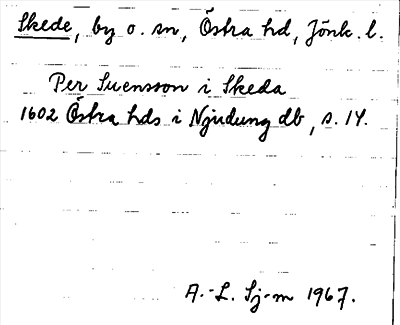 Skede, by o. sn, Östra hd, Jönk. l.
Per Suensson i Skeda
1602 Östra hds i Njudung db, s. 14.
A.-L. Sj-m 1967.